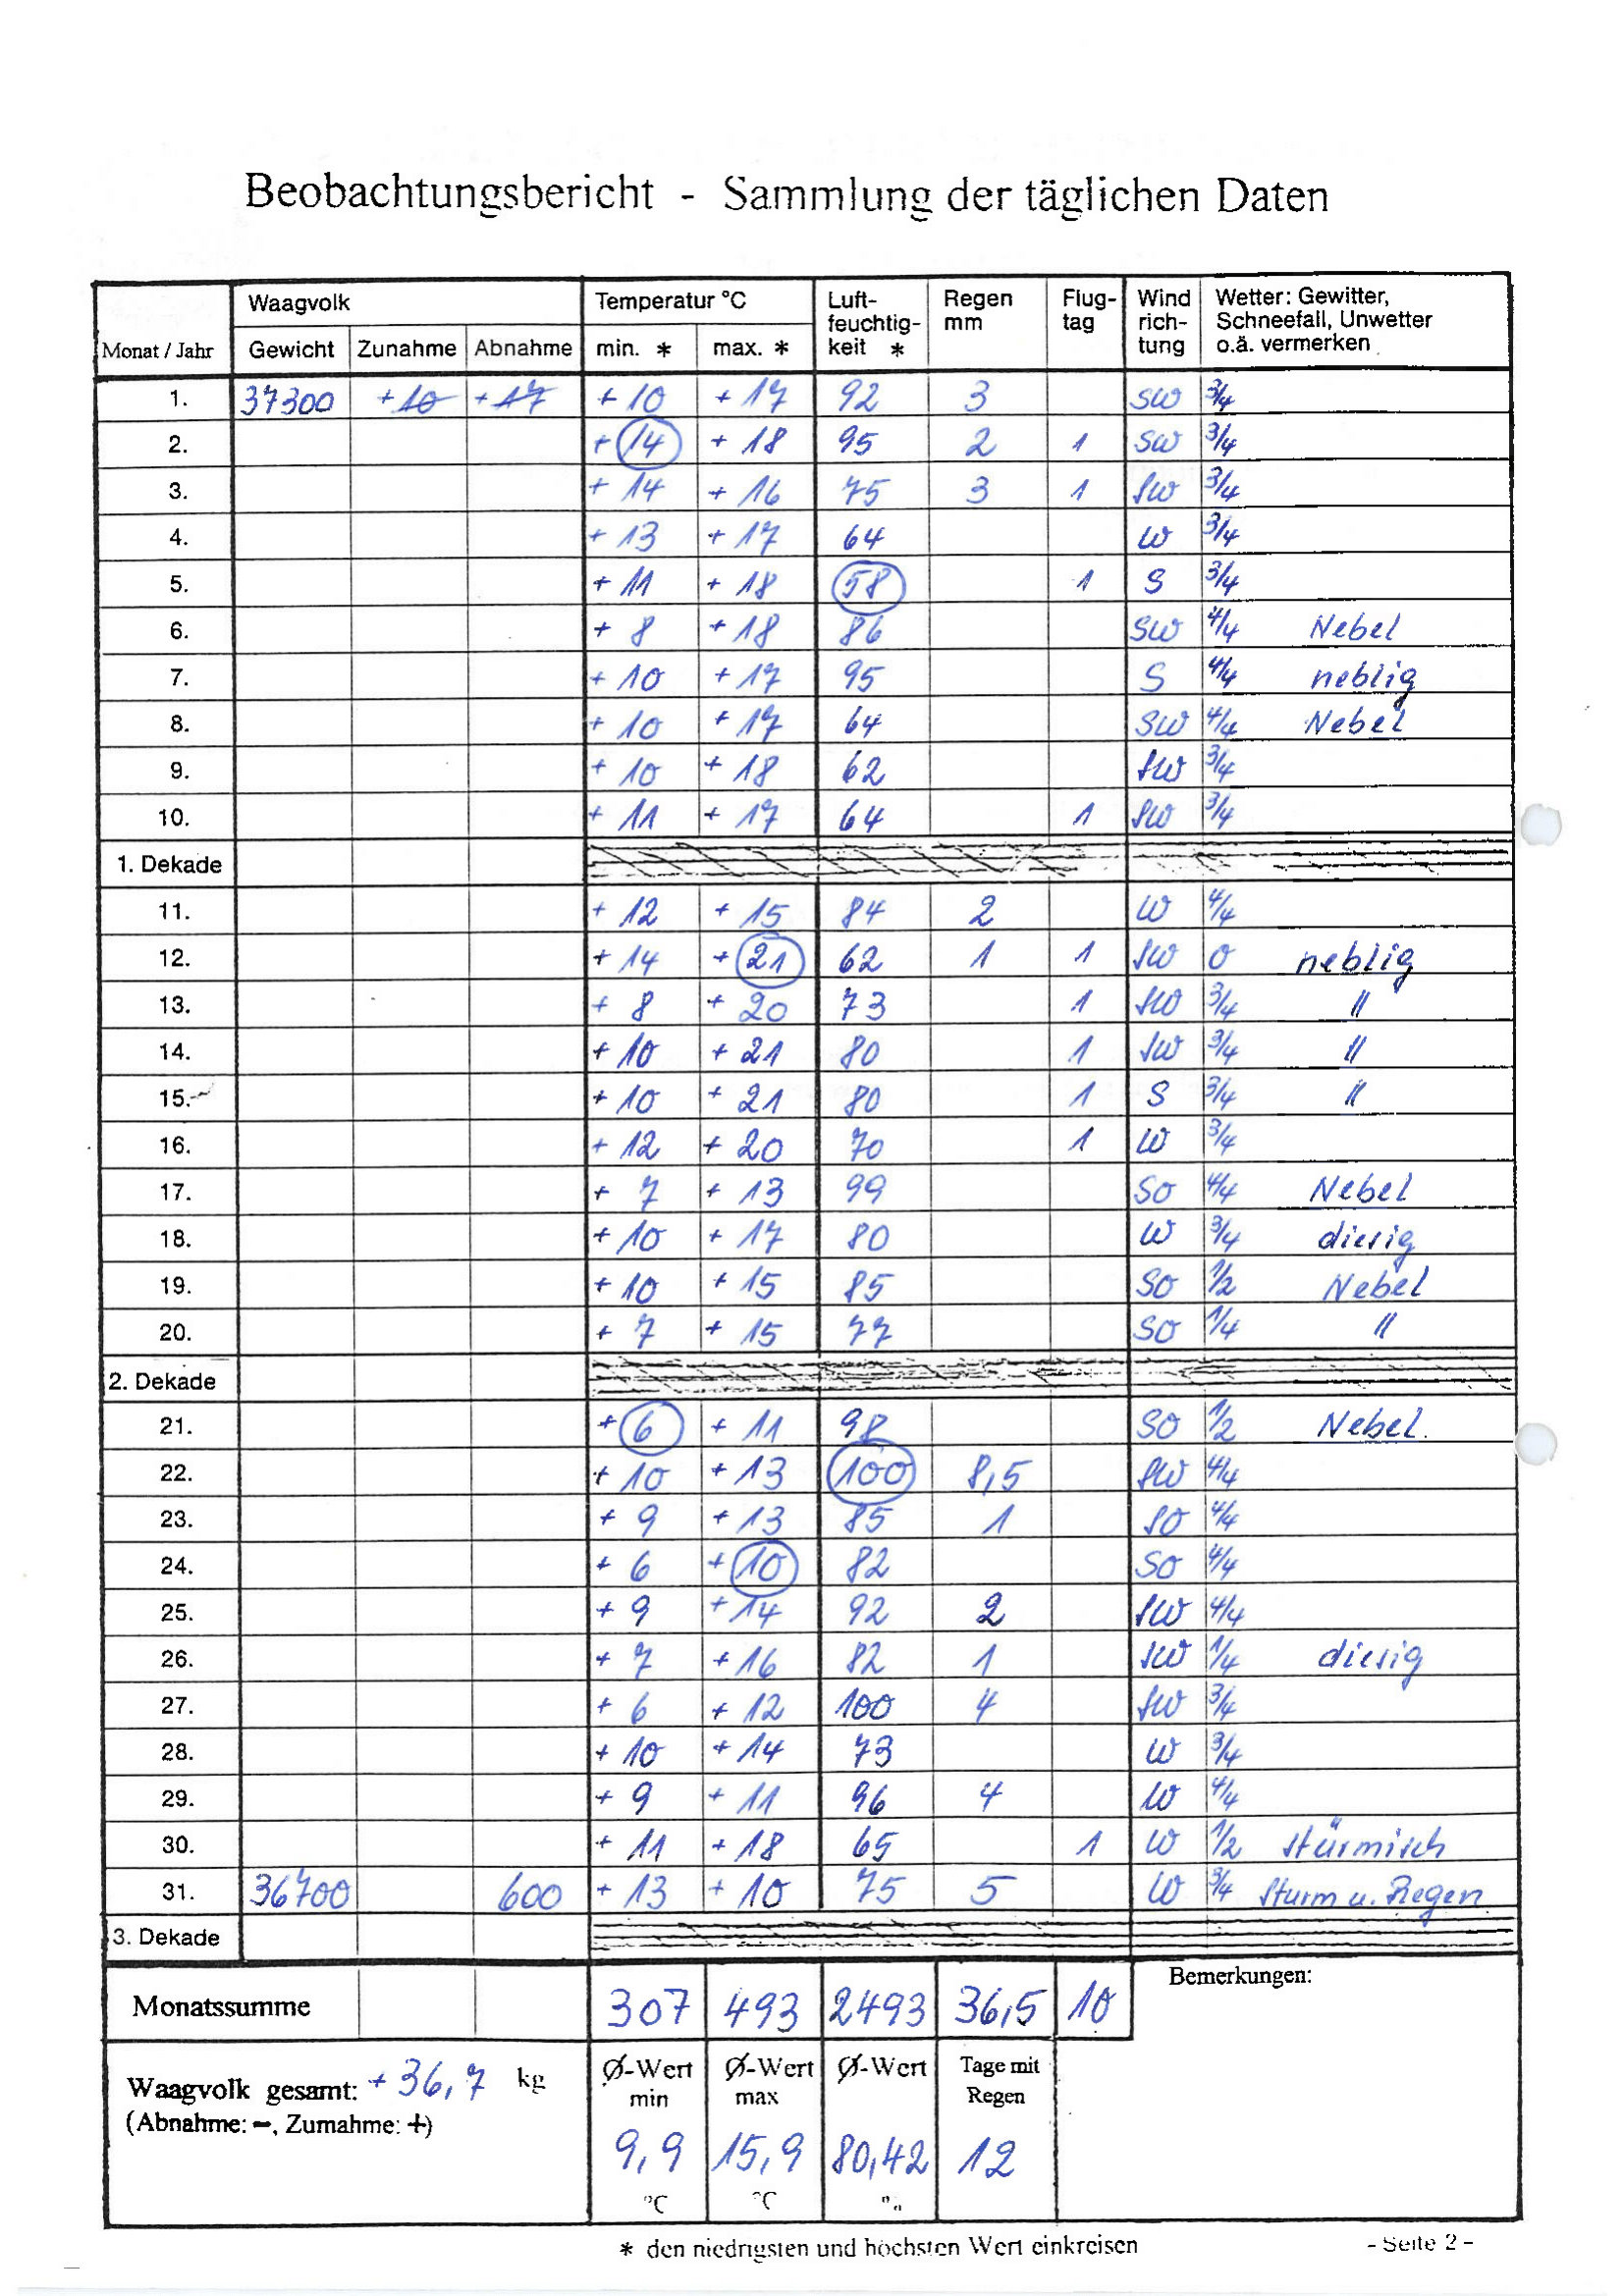 Beobachtungsbericht - Sammlung der täglichen Daten
Monat / Jahr Waagvolk Temperatur °C Luft- Regen Flug- Wind Wetter: Gewitter,
feuchtig- mm tag rich- Schneefall, Unwetter
Gewicht Zunahme Abnahme min. * max. * keit * tung o.ä. vermerken
1. 37300 +10 +17 +10 +17 92 3 SW 3/4
2. +14 +18 95 2 1 SW 3/4
3. +14 +16 75 3 1 SW 3/4
4. +13 +17 64 W 3/4
5. +11 +18 58 1 S 3/4
6. +8 +18 86 SW 4/4 Nebel
7. +10 +17 95 S 4/4 neblig
8. +10 +17 64 SW 4/4 Nebel
9. +10 +18 62 SW 3/4
10. +11 +17 64 1 SW 3/4
1. Dekade
11. +12 +15 84 2 W 4/4
12. +14 +21 62 1 1 SW 0 neblig
13. +8 +20 73 1 SW 3/4 "
14. +10 +21 80 1 SW 3/4 "
15. +10 +21 80 1 S 3/4 "
16. +12 +20 70 1 W 3/4
17. +7 +13 99 SO 4/4 Nebel
18. +10 +17 80 W 3/4 diesig
19. +10 +15 85 SO 1/2 Nebel
20. +7 +15 77 SO 1/4 "
2. Dekade
21. +6 +11 98 SO 1/2 Nebel.
22. +10 +13 100 8,5 SW 4/4
23. +9 +13 85 1 SO 4/4
24. +6 +10 82 SO 4/4
25. +9 +14 92 2 SW 4/4
26. +7 +16 82 1 SW 1/4 diesig
27. +6 +12 100 4 SW 3/4
28. +10 +14 73 W 3/4
29. +9 +11 96 4 W 4/4
30. +11 +18 65 1 W 1/2 stürmisch
31. 36700 600 +13 +10 75 5 W 3/4 Sturm u. Regen
3. Dekade
Monatssumme 307 493 2493 36,5 10 Bemerkungen:
Waagvolk gesamt: +36,7 kg Ø-Wert Ø-Wert Ø-Wert Tage mit
(Abnahme: -, Zumahme: +) min max Regen
9,9 15,9 80,42 12
°C °C
* den niedrigsten und höchsten Wert einkreisen - Seite 2 -